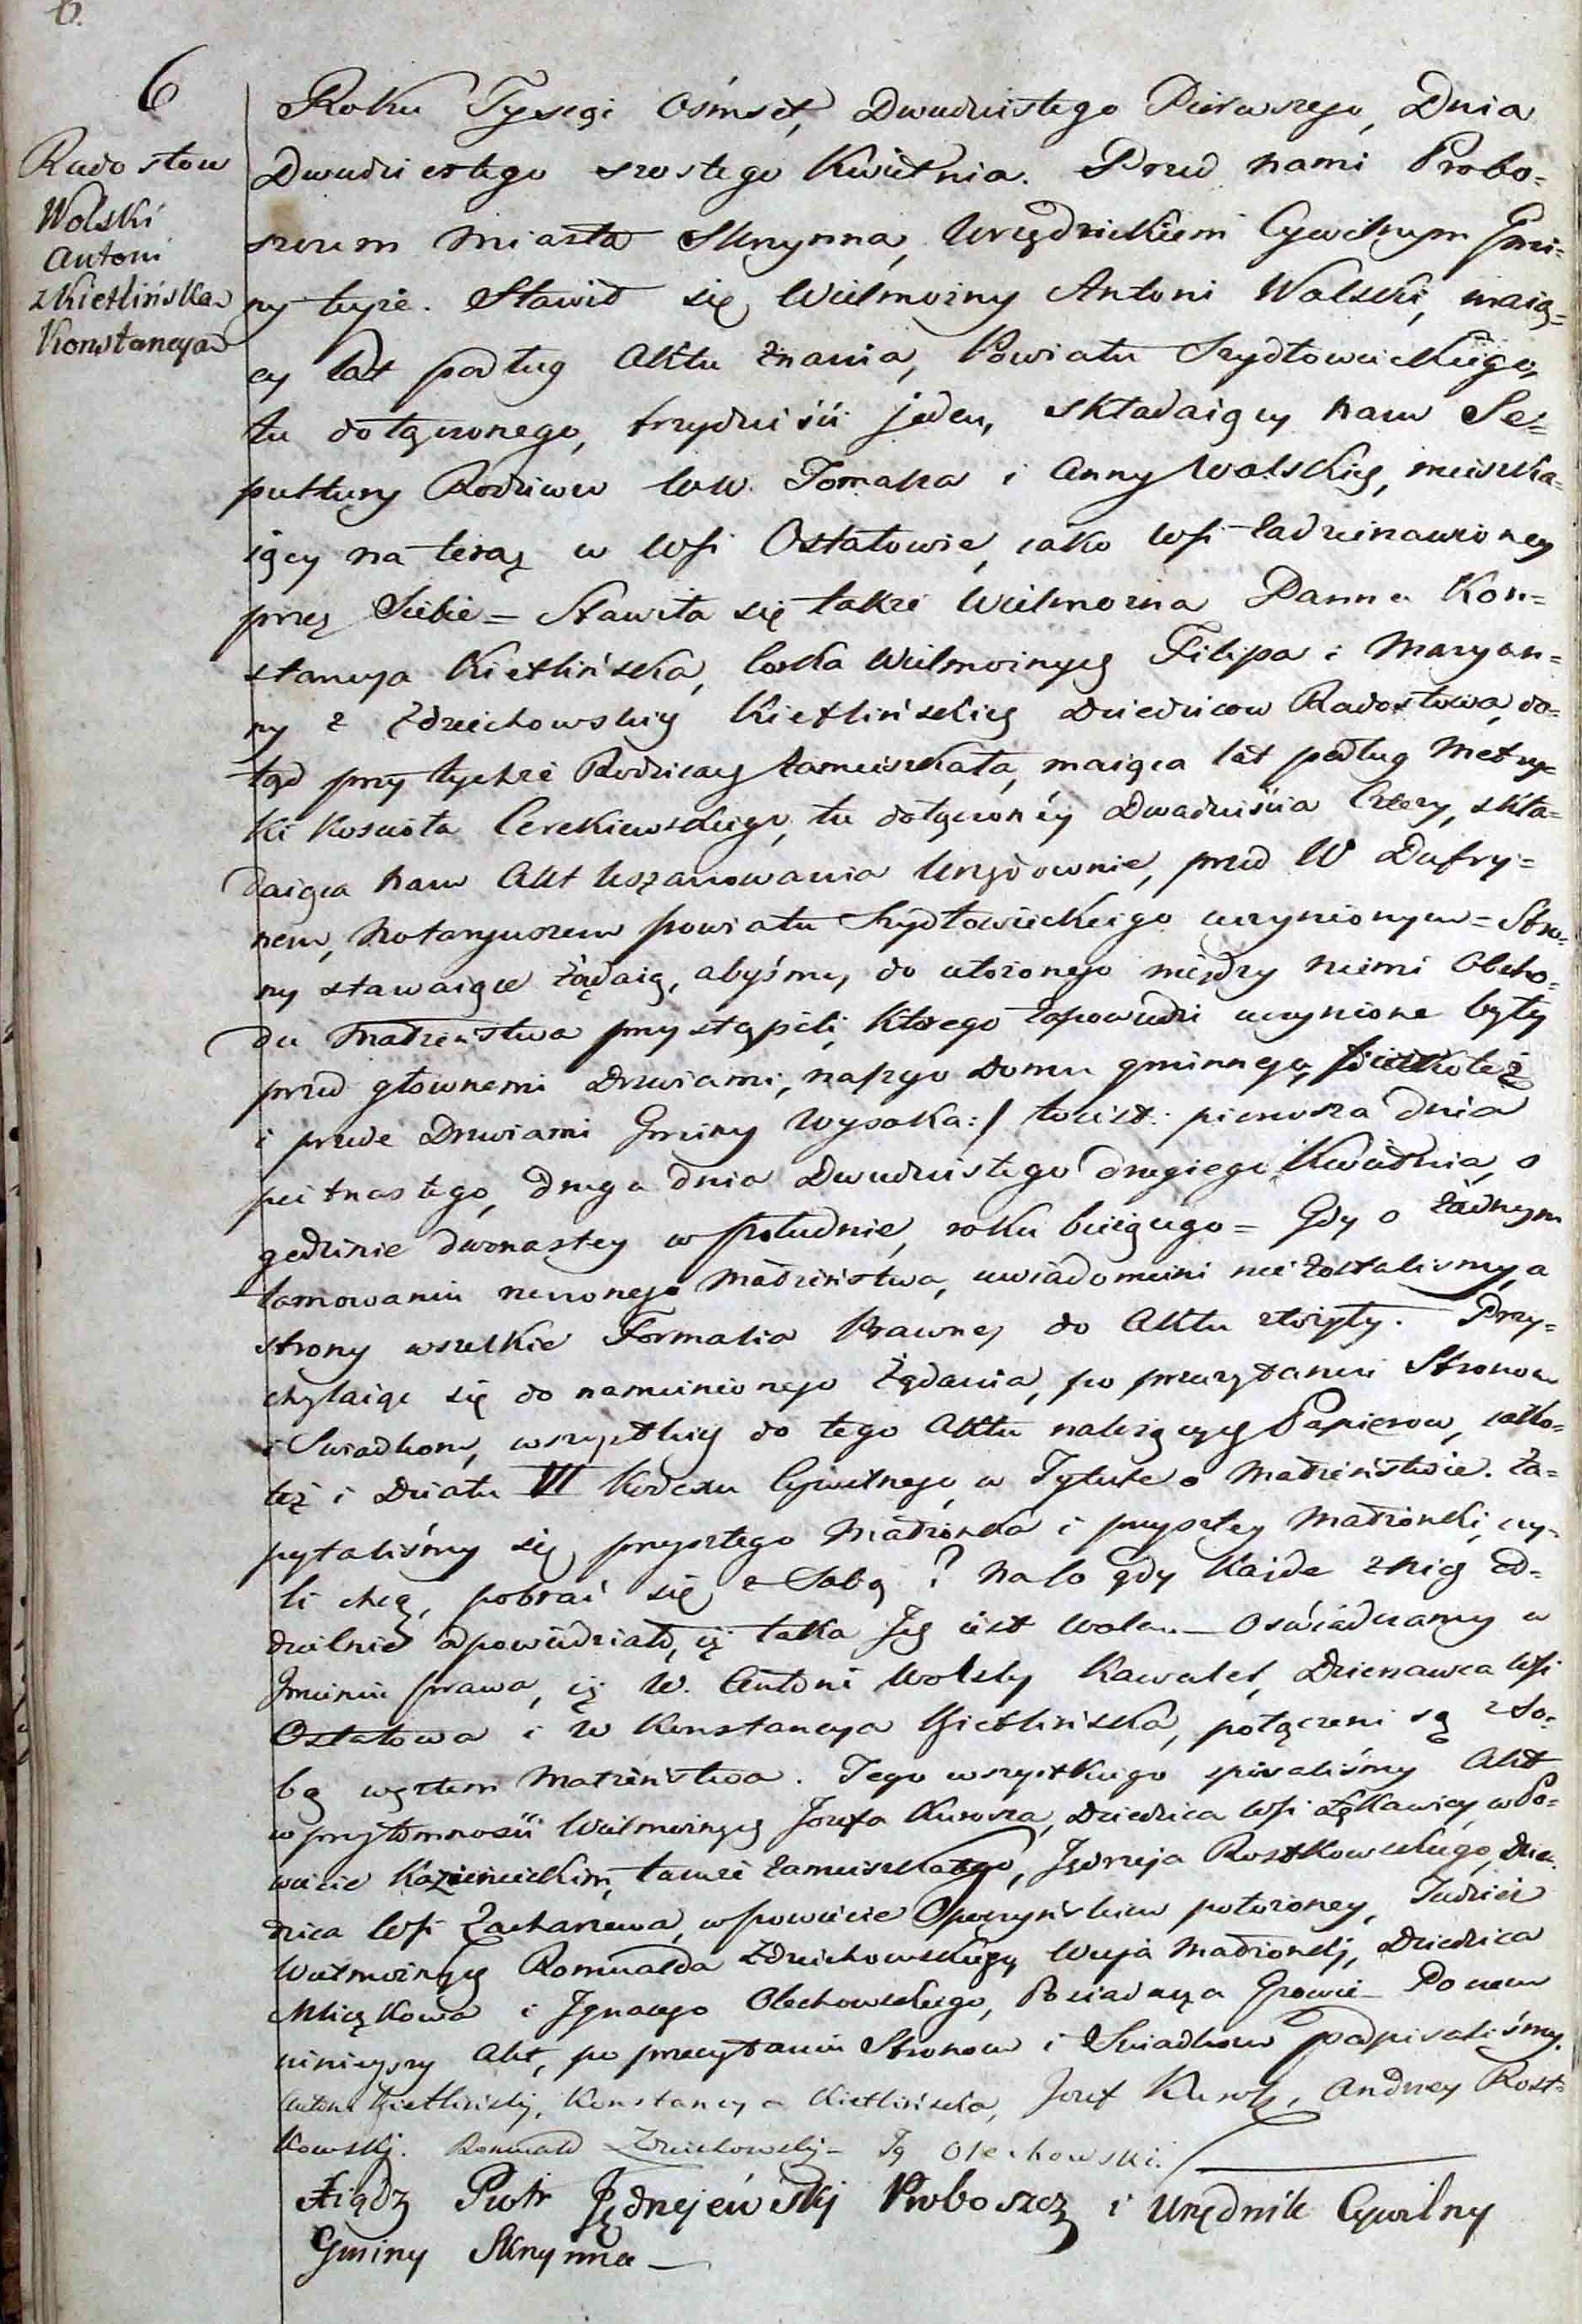 6.
6
Radostow
Wolski
Antoni
z Kietlińska
Konstancya
Roku Tysiąc Ośmset, Dwudziestego Pierwszego, Dnia
Dwudziestego szostego Kwietnia. Przed nami Probo=
szczem Miasta Skrzynna, Urzędnikiem Cywilnym Gmi=
ny teyże. Stawił się Wielmożny Antoni Wolski, maią=
cy lat podług Aktu Znania, Powiatu Szydłowieckiego,
tu dołączonego, trzydzieści jeden, składaiący nam Se=
pultury Rodziców WW. Tomasza i Anny Wolskich, mieszka=
iący na teraz w Wsi Ostałowie, iako Wsi zadzierzawioney
przez Siebie = Stawiła się także Wielmożna Panna Kon=
stancya Kietlińska, Corka Wielmożnych Filipa i Maryan=
ny z Zdziechowskich Kietlińskich Dziedziców Radostowa, do=
tąd przy tychże Rodzicach zamieszkała, maiąca lat podług Metry=
ki Kościoła Cerekiewskiego, tu dołączoney Dwadzieścia Cztery, skła=
daiąca nam Akt Uszanowania Urzędownie, przed W
nem, Notaryuszem powiatu Szydłowieckiego uczynionym = Stro=
ny stawaiące żądaią, abyśmy do ułożonego między niemi Obcho=
du Małżeństwa przystąpili, którego zapowiedzi uczynione były
przed głownemi Drzwiami, naszego Domu gminnego,
i przede Drzwiami Gminy Wysoka:/ toiest: pierwsza dnia
pietnastego, druga dnia Dwudziestego drugiego Kwietnia, o
godzinie dwonastey w Południe, roku bieżącego = Gdy o żadnym
tamowaniu rzeczonego Małżeństwa, uwiadomieni nie zostalismy, a
strony wszelkie Formalia Prawney do Aktu złożyły. Przy=
chylaiąc się do namienionego Żądania, po przeczytaniu Stronom
i Swiadkom, wszystkich do tego Aktu należących Papierow, iako=
też i Działu VI Kodexu Cywilnego, w Tytule o Małżeństwie. Za=
pytaliśmy się przyszłego Małżonka i przyszłey Małżonki, czy=
li chcą, pobrać się z Sobą? Na co gdy Każde z nich od=
dzielnie odpowiedziało, iż taka Ich iest Wola. — Oświadczamy w
Imieniu Prawa, iż W. Antoni Wolsky Kawaler, Dzierzawca Wsi
Ostałowa i W Konstancya Kietlińska, połączeni są z So=
bą węzłem Małżeństwa. Tego wszystkiego spisaliśmy Akt
w przytomności Wielmożnych Jozefa Kurosza, Dziedzica Wsi Łękawicy, w Po=
wiecie Kozienieckim, tamże zamieszkałego, Jędrzeja Rostkowskiego, Dzie=
dzica Wsi Zacharzewa, w powiecie Opoczyńskim położoney, Tudzież
Wielmożnych Romualda Zdziechowskiego, Wuja Małżonki, Dziedzica
i Ignacego Olechowskiego, Posiadacza — Po czem
ninieyszy Akt, po przeczytaniu Stronom i Swiadkom podpisaliśmy.
Antoni Kietliński, Konstancya Kietlińska, Jozef Kurosz, Andrzey Rost=
kowskj. Romuald Zdziechowskj - Ig Olechowski.
Xiądz Piotr Jędrzejewskj Proboszcz i Urzędnik Cywilny
Gminy Skrzynna —